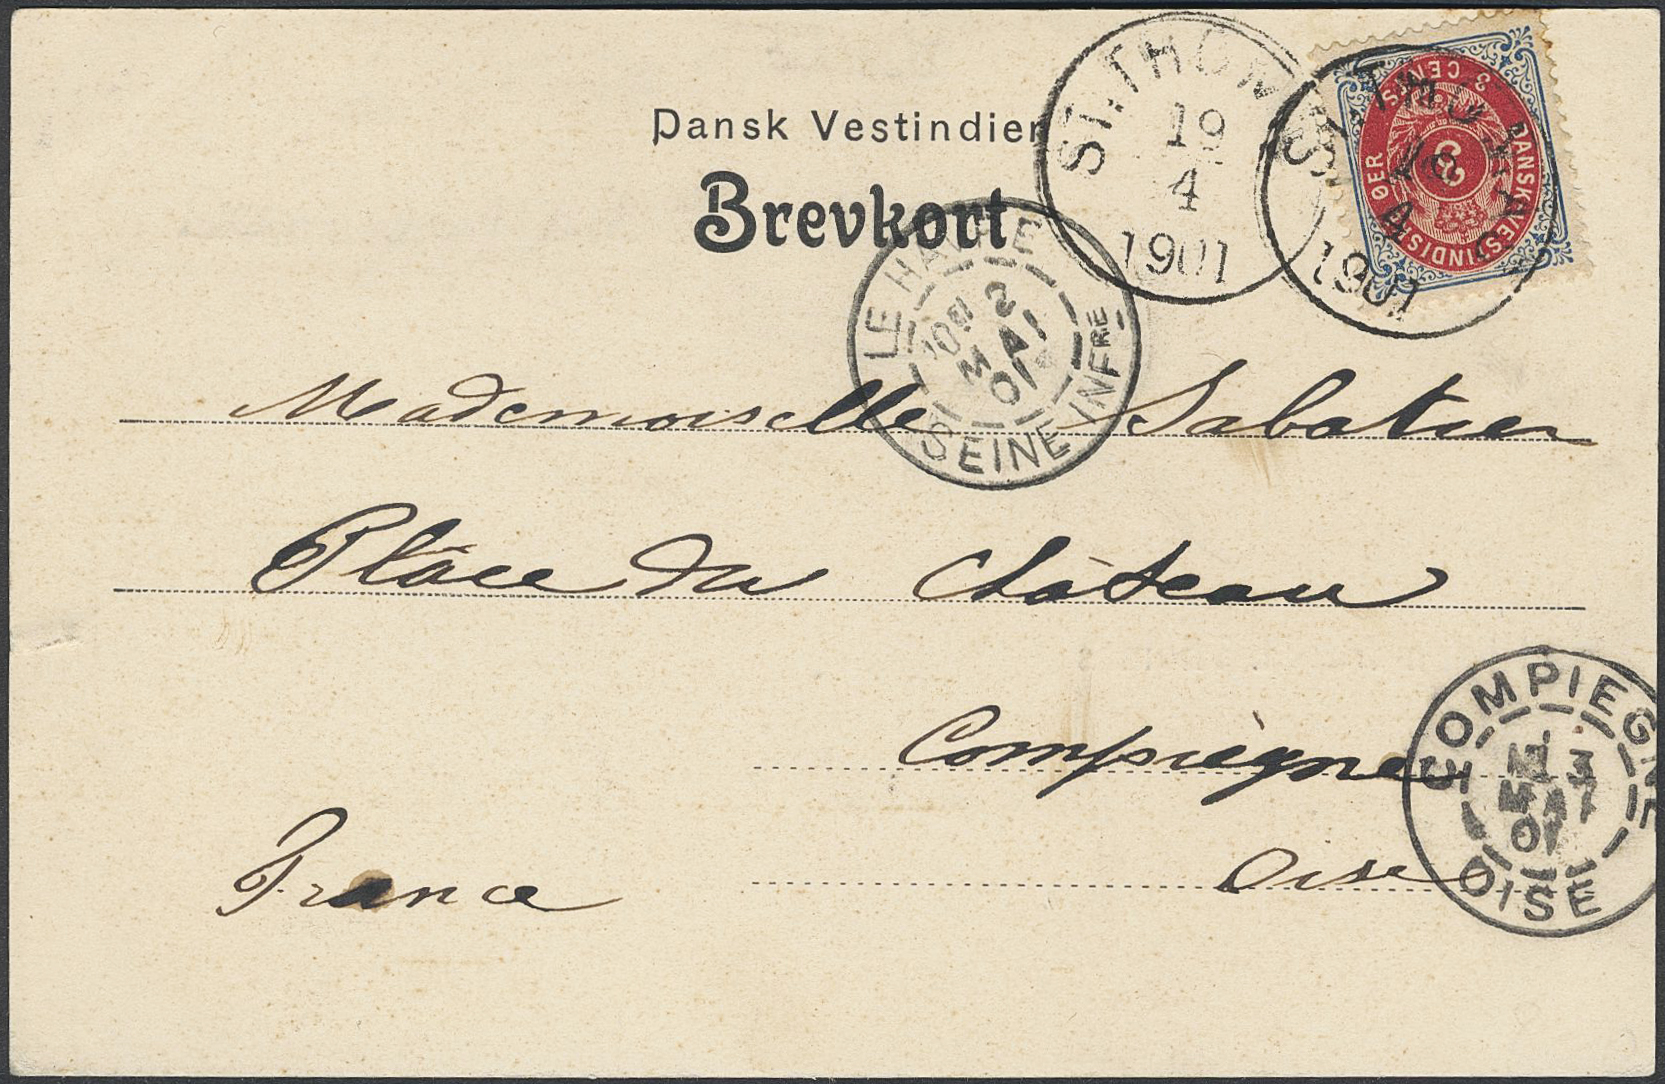 Dansk Vestindien
Brevkort
ST. THOM
19
4
1901
ST. THOMAS
4
1901
3 CENTS
DANSK VESTINDISK
3
ØER
LE HAVRE
2
MAI
01
SEINE INFRE
Mademoiselle Sabatier
Place du Château
Compiègne
Oise
France
COMPIEGNE
3
MAI
01
OISE